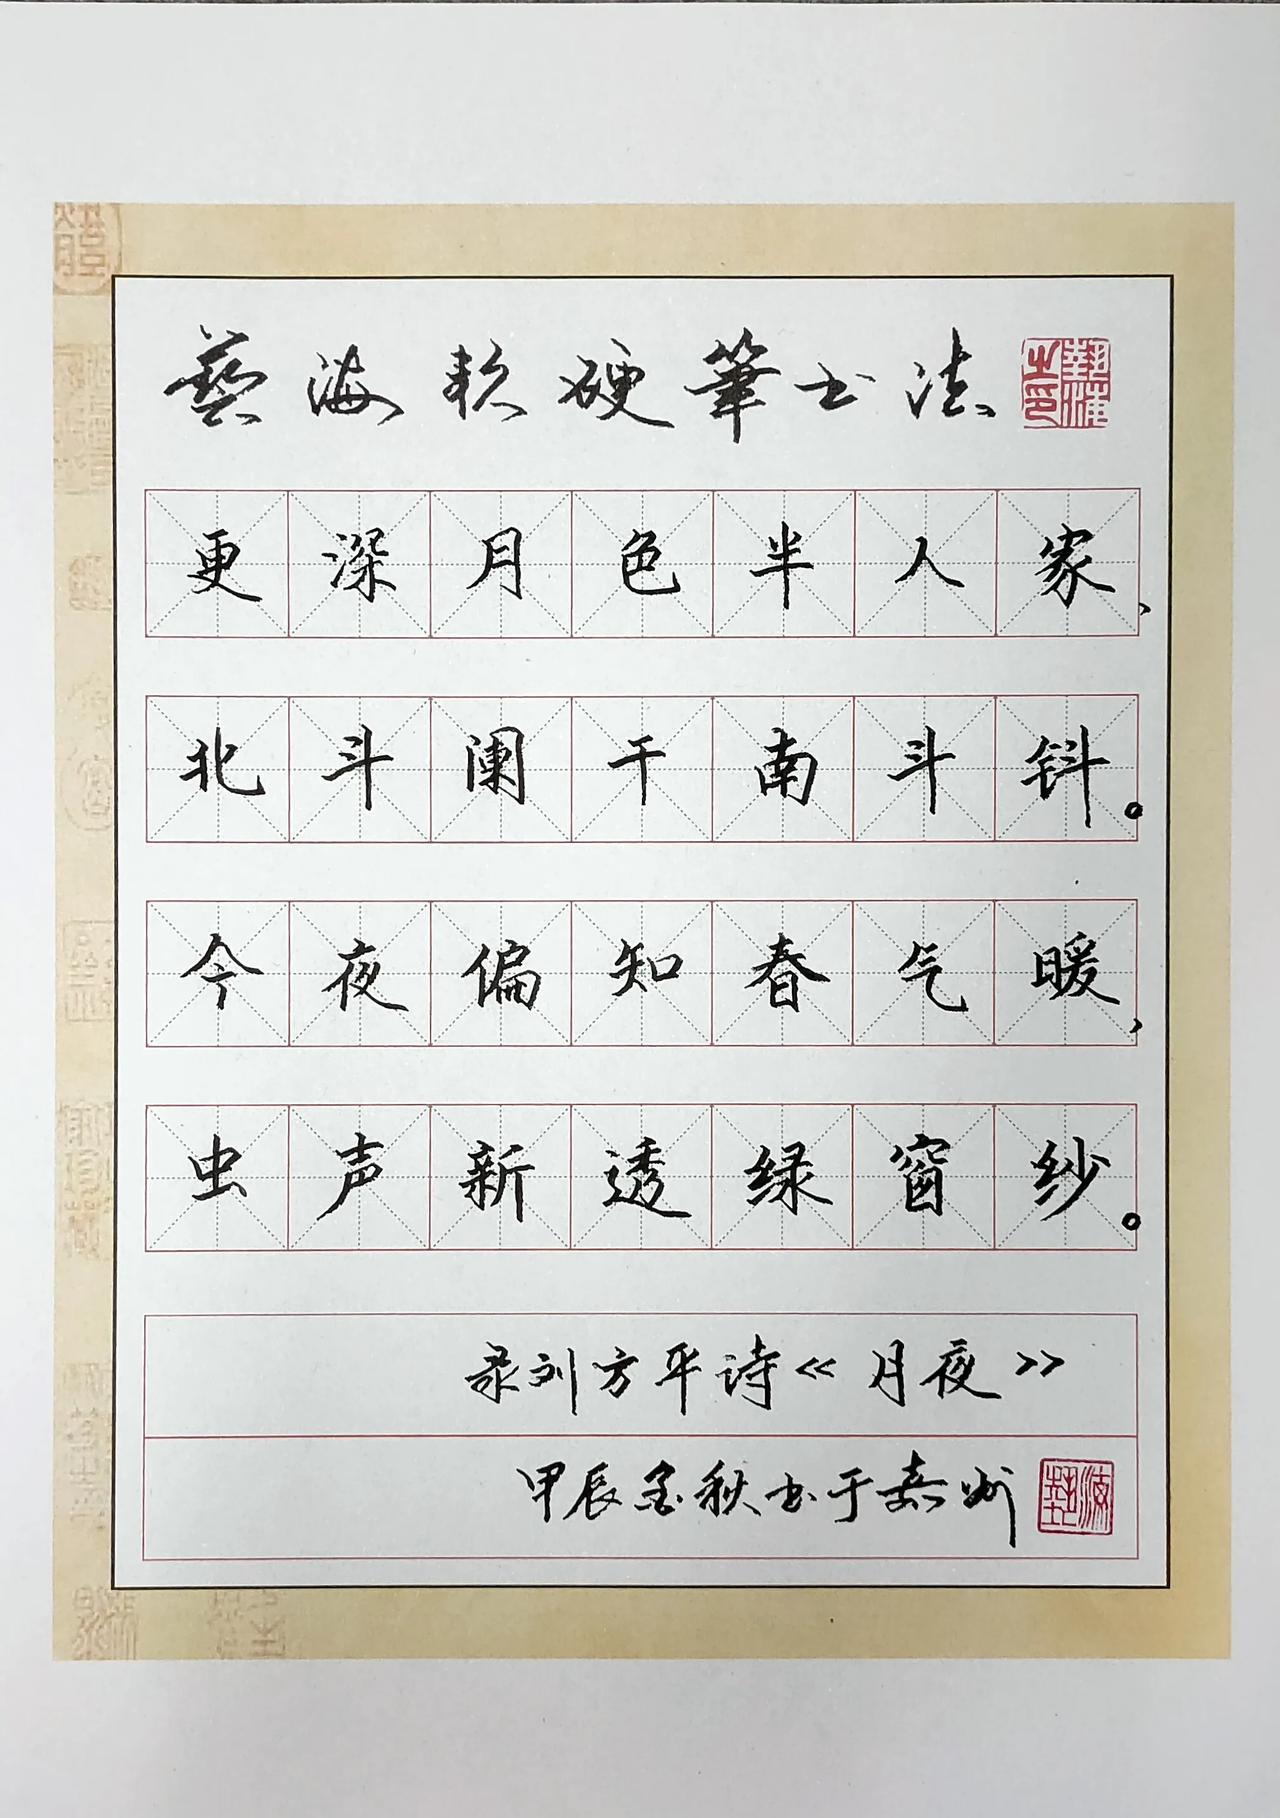 藝海软硬筆书法
更深月色半人家，
北斗阑干南斗钭。
今夜偏知春气暖，
虫声新透绿窗纱。
录刘方平诗《月夜》
甲辰金秋书于嘉州